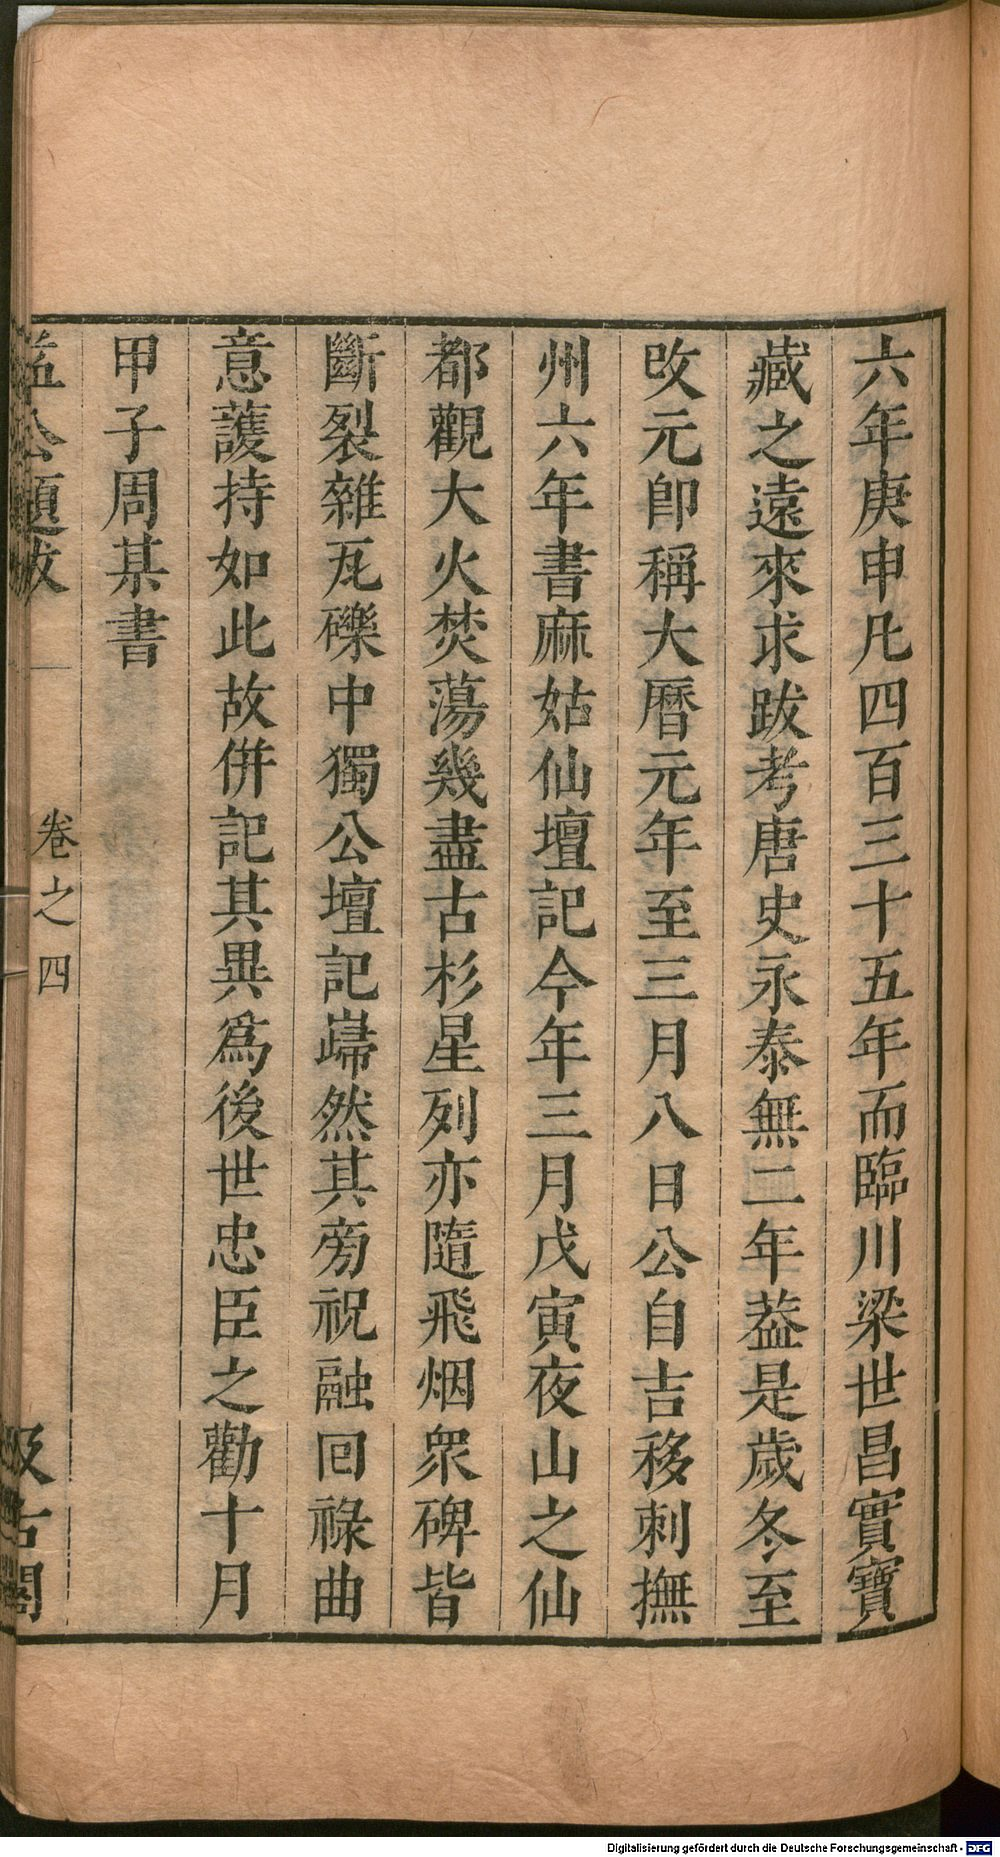 六年庚申凡四百三十五年而臨川梁世昌實寶
藏之遠來求跋考唐史永泰無二年葢是歲冬至
改元卽稱大曆元年至三月八日公自吉移刺撫
州六年書麻姑仙壇記今年三月戊寅夜山之仙
都觀大火焚蕩幾盡古杉星列亦隨飛烟衆碑皆
斷裂雜瓦礫中獨公壇記巋然其旁祝融回祿曲
意護持如此故併記其異爲後世忠臣之勸十月
甲子周某書
益公題跋 卷之四 汲古閣
Digitalisierung gefördert durch die Deutsche Forschungsgemeinschaft - DFG